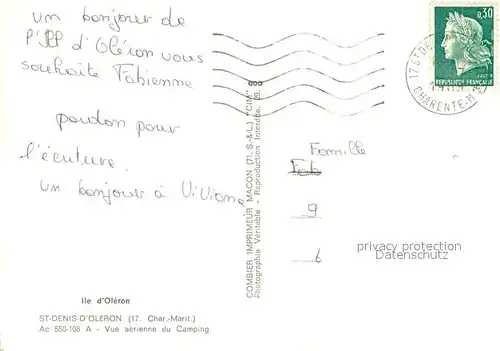 un bonjour de
l'Il d'Oléron vous
souhaite Fabienne
pardon pour
l'écriture.
un bonjour à Viviane
île d'Oléron
ST-DENIS-D'OLERON (17. Char.-Marit.)
Ac 550-108 A - Vue aérienne du Camping
COMBIER IMPRIMEUR MACON (71. S.-&-L.) "CIM"
Photographie Véritable - Reproduction Interdite.
Famille
Fab
9
6
0,30
REPUBLIQUE FRANÇAISE
17 ST DE
CHARENTE-M
privacy protection
DATENSCHUTZ